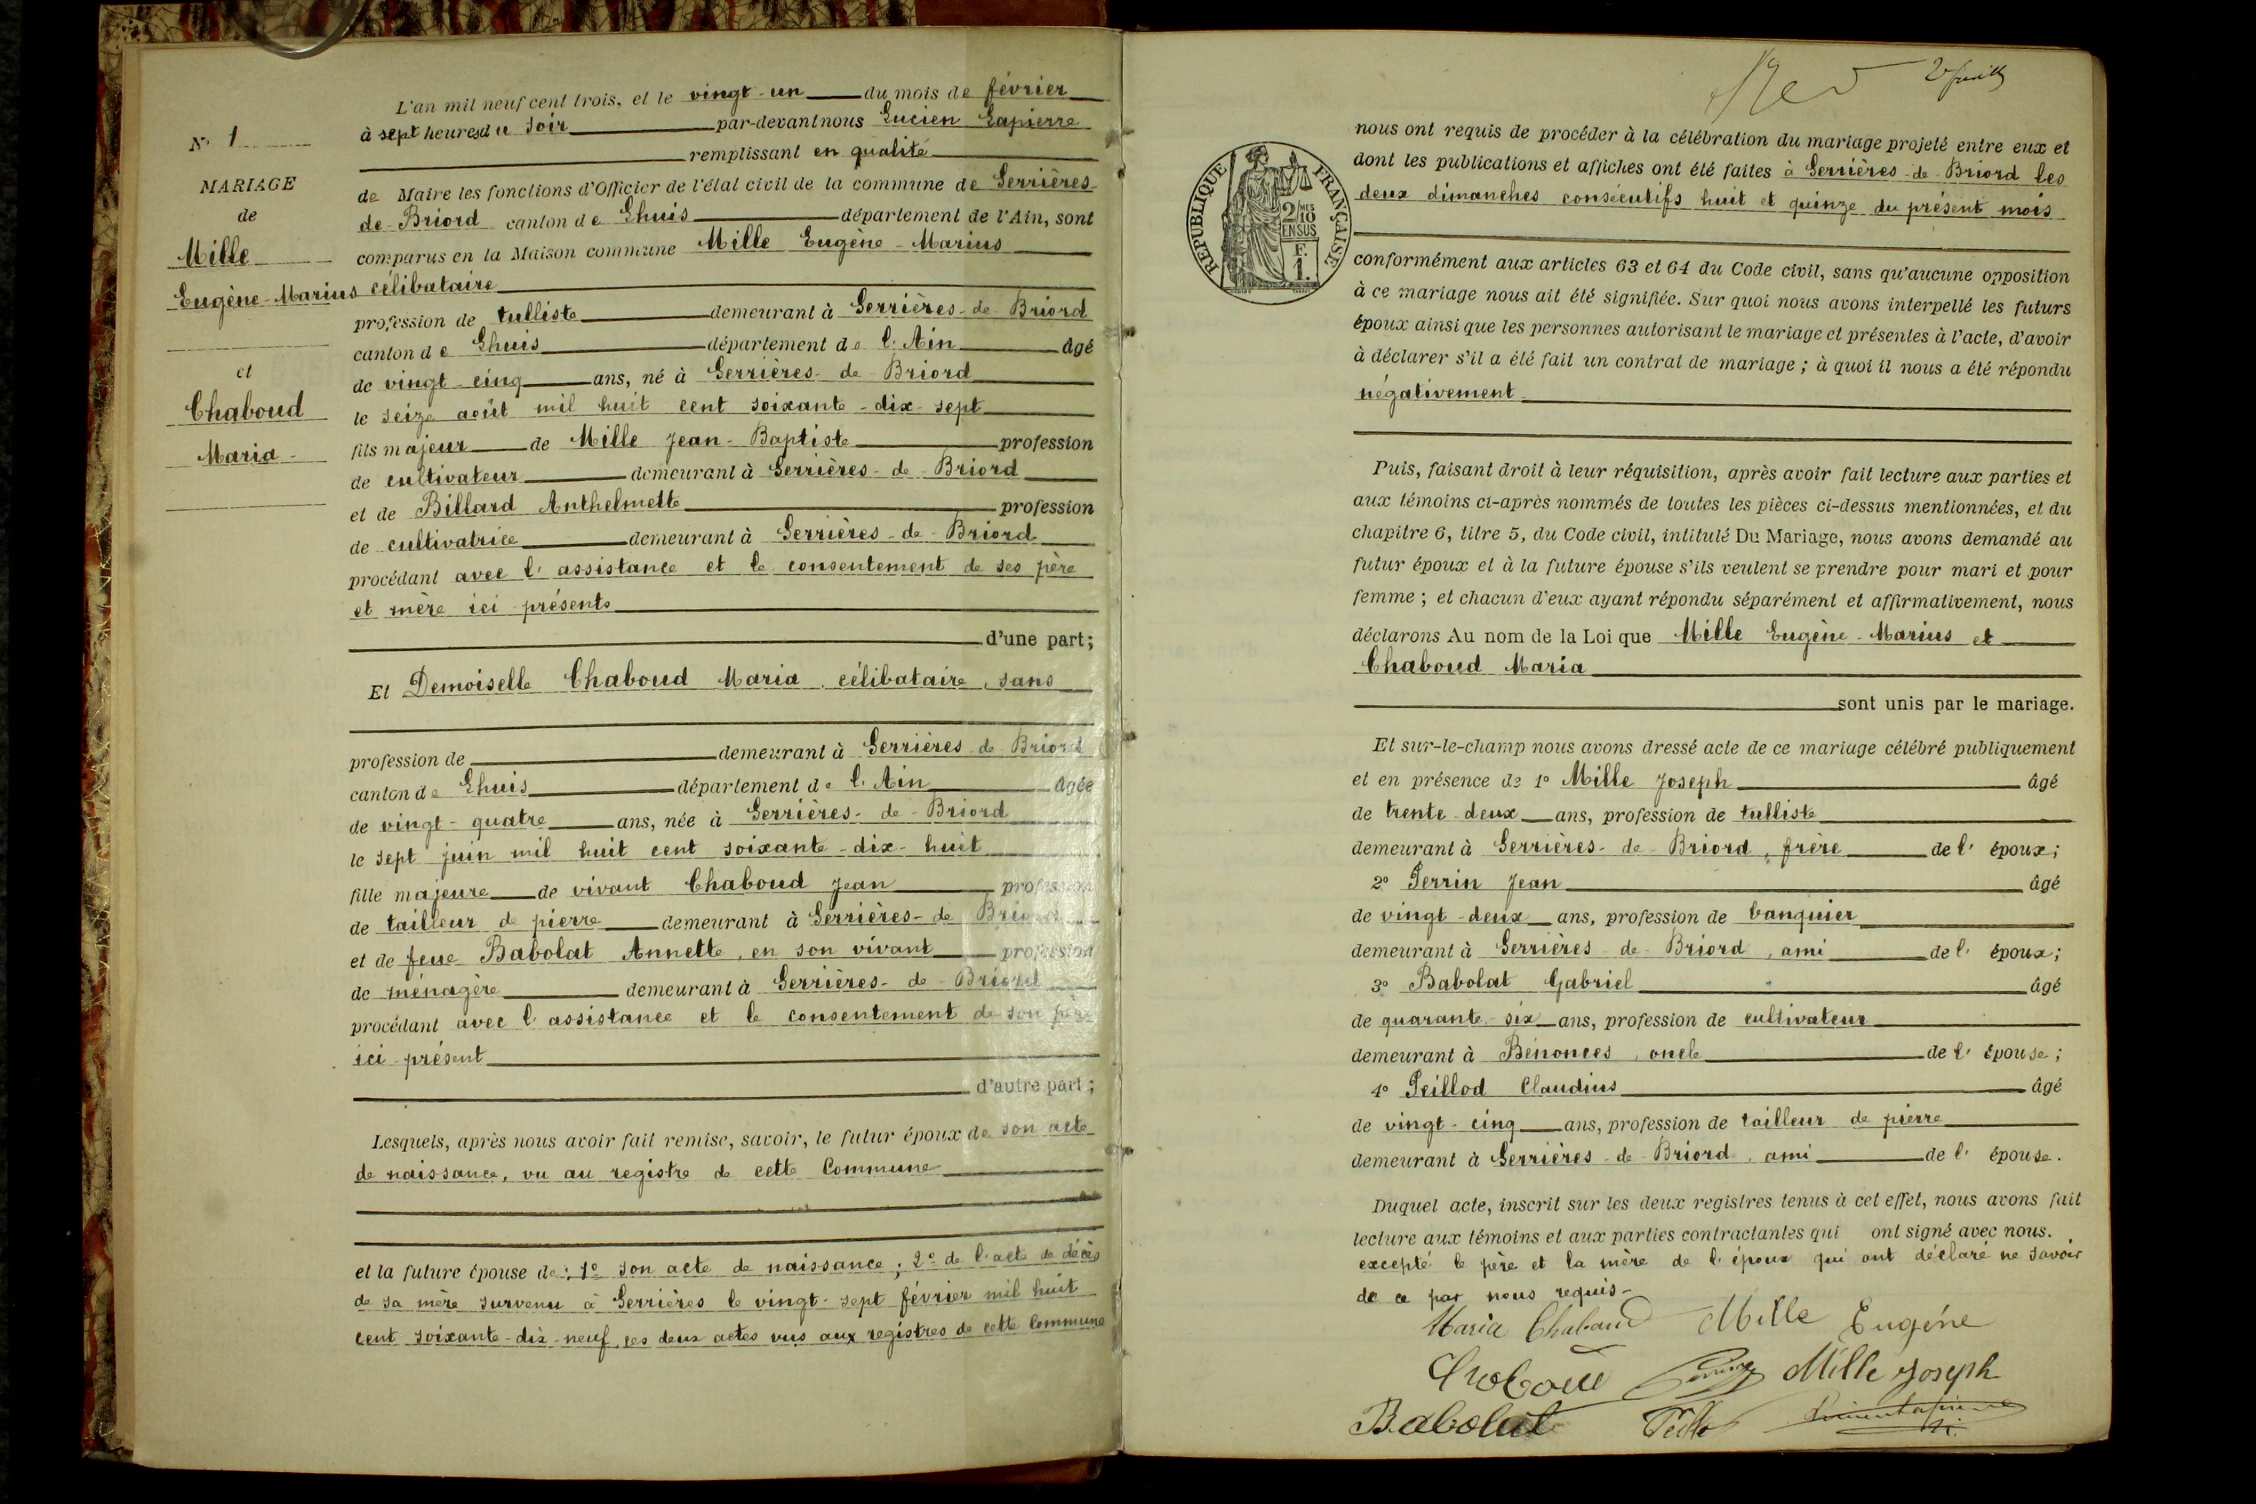 L'an mil neuf cent trois, et le vingt-un du mois de février
à sept heures du soir par-devant nous Lucien Lapierre
remplissant en qualité
de Maire les fonctions d'Officier de l'état civil de la commune de Serrières
de-Briord canton de Lhuis département de l'Ain, sont
comparus en la Maison commune Mille Eugène-Marius
célibataire
profession de tulliste demeurant à Serrières-de-Briord
canton de Lhuis département de l'Ain âgé
de vingt-cinq ans, né à Serrières-de-Briord
le seize août mil huit cent soixante-dix-sept
fils majeur de Mille Jean-Baptiste profession
de cultivateur demeurant à Serrières-de-Briord
et de Billard Anthelmette profession
de cultivatrice demeurant à Serrières-de-Briord
procédant avec l'assistance et le consentement de ses père
et mère ici présents
d'une part;
Et Demoiselle Chaboud Maria, célibataire, sans
profession de demeurant à Serrières-de-Briord
canton de Lhuis département de l'Ain âgée
de vingt-quatre ans, née à Serrières-de-Briord
le sept juin mil huit cent soixante-dix-huit
fille majeure de vivant Chaboud Jean profession
de tailleur de pierre demeurant à Serrières-de Briord
et de feue Babolat Annette, en son vivant profession
de ménagère demeurant à Serrières-de-Briord
procédant avec l'assistance et le consentement de son père
ici présent
d'autre part;
Lesquels, après nous avoir fait remise, savoir, le futur époux de son acte
de naissance, vu au registre de cette Commune
et la future épouse de: 1° son acte de naissance; 2° de l'acte de décès
de sa mère survenu à Serrières le vingt-sept février mil huit
cent soixante-dix-neuf, ces deux actes vus aux registres de cette Commune
N° 1
MARIAGE
de
Mille
Eugène-Marius
et
Chaboud
Maria-
2e feuille
RÉPUBLIQUE FRANÇAISE
2/10 MES
EN SUS
F.
1.
nous ont requis de procéder à la célébration du mariage projeté entre eux et
dont les publications et affiches ont été faites à Serrières-de-Briord les
deux dimanches consécutifs huit et quinze du présent mois
conformément aux articles 63 et 64 du Code civil, sans qu'aucune opposition
à ce mariage nous ait été signifiée. Sur quoi nous avons interpellé les futurs
époux ainsi que les personnes autorisant le mariage et présentes à l'acte, d'avoir
à déclarer s'il a été fait un contrat de mariage; à quoi il nous a été répondu
négativement
Puis, faisant droit à leur réquisition, après avoir fait lecture aux parties et
aux témoins ci-après nommés de toutes les pièces ci-dessus mentionnées, et du
chapitre 6, titre 5, du Code civil, intitulé Du Mariage, nous avons demandé au
futur époux et à la future épouse s'ils veulent se prendre pour mari et pour
femme; et chacun d'eux ayant répondu séparément et affirmativement, nous
déclarons Au nom de la Loi que Mille Eugène-Marius et
Chaboud Maria
sont unis par le mariage.
Et sur-le-champ nous avons dressé acte de ce mariage célébré publiquement
et en présence de 1° Mille Joseph âgé
de trente deux ans, profession de tulliste
demeurant à Serrières-de-Briord, frère de l'époux;
2° Perrin Jean âgé
de vingt-deux ans, profession de banquier
demeurant à Serrières-de-Briord, ami de l'époux;
3° Babolat Gabriel âgé
de quarante-six ans, profession de cultivateur
demeurant à Bénonces, oncle de l'épouse;
4° Peillod Claudius âgé
de vingt-cinq ans, profession de tailleur de pierre
demeurant à Serrières-de-Briord, ami de l'épouse.
Duquel acte, inscrit sur les deux registres tenus à cet effet, nous avons fait
lecture aux témoins et aux parties contractantes qui ont signé avec nous.
excepté le père et la mère de l'époux qui ont déclaré ne savoir
de ce par nous requis-
Maria Chaboud Mille Eugéne
Chaboud Perrin Mille Joseph
Babolat